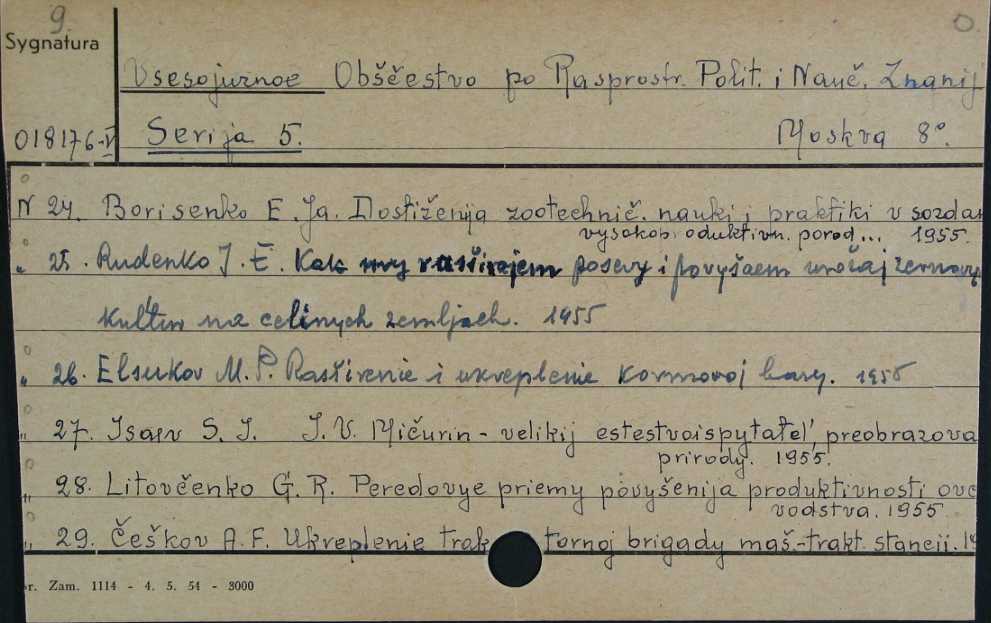 9.
Sygnatura
Vsesojuznoe Obščestvo po Rasprostr. Polit. i Nauč. Znanij
018176-V Serija 5. Moskva 8°.
N 24. Borisenko E. Ja. Dostiženija zootechnič. nauki i praktiki v sozdan
vysokoproduktivn. porod... 1955.
„ 25. Rudenko I. E. Kak my rasširajem posevy i povyšaem urožaj zernovy
kul'tur na celinych zemljach. 1955
„ 26. Elsukov M. P. Rasširenie i ukreplenie kormovoj bazy. 1955
„ 27. Isaev S. I. I. V. Mičurin - velikij estestvoispytatel', preobrazova
prirody. 1955.
„ 28. Litovčenko G. R. Peredovye priemy povyšenija produktivnosti ovc
vodstva. 1955
„ 29. Češkov A. F. Ukreplenie trak tornoj brigady maš.-trakt. stancii. 19
r. Zam. 1114 - 4. 5. 54 - 3000